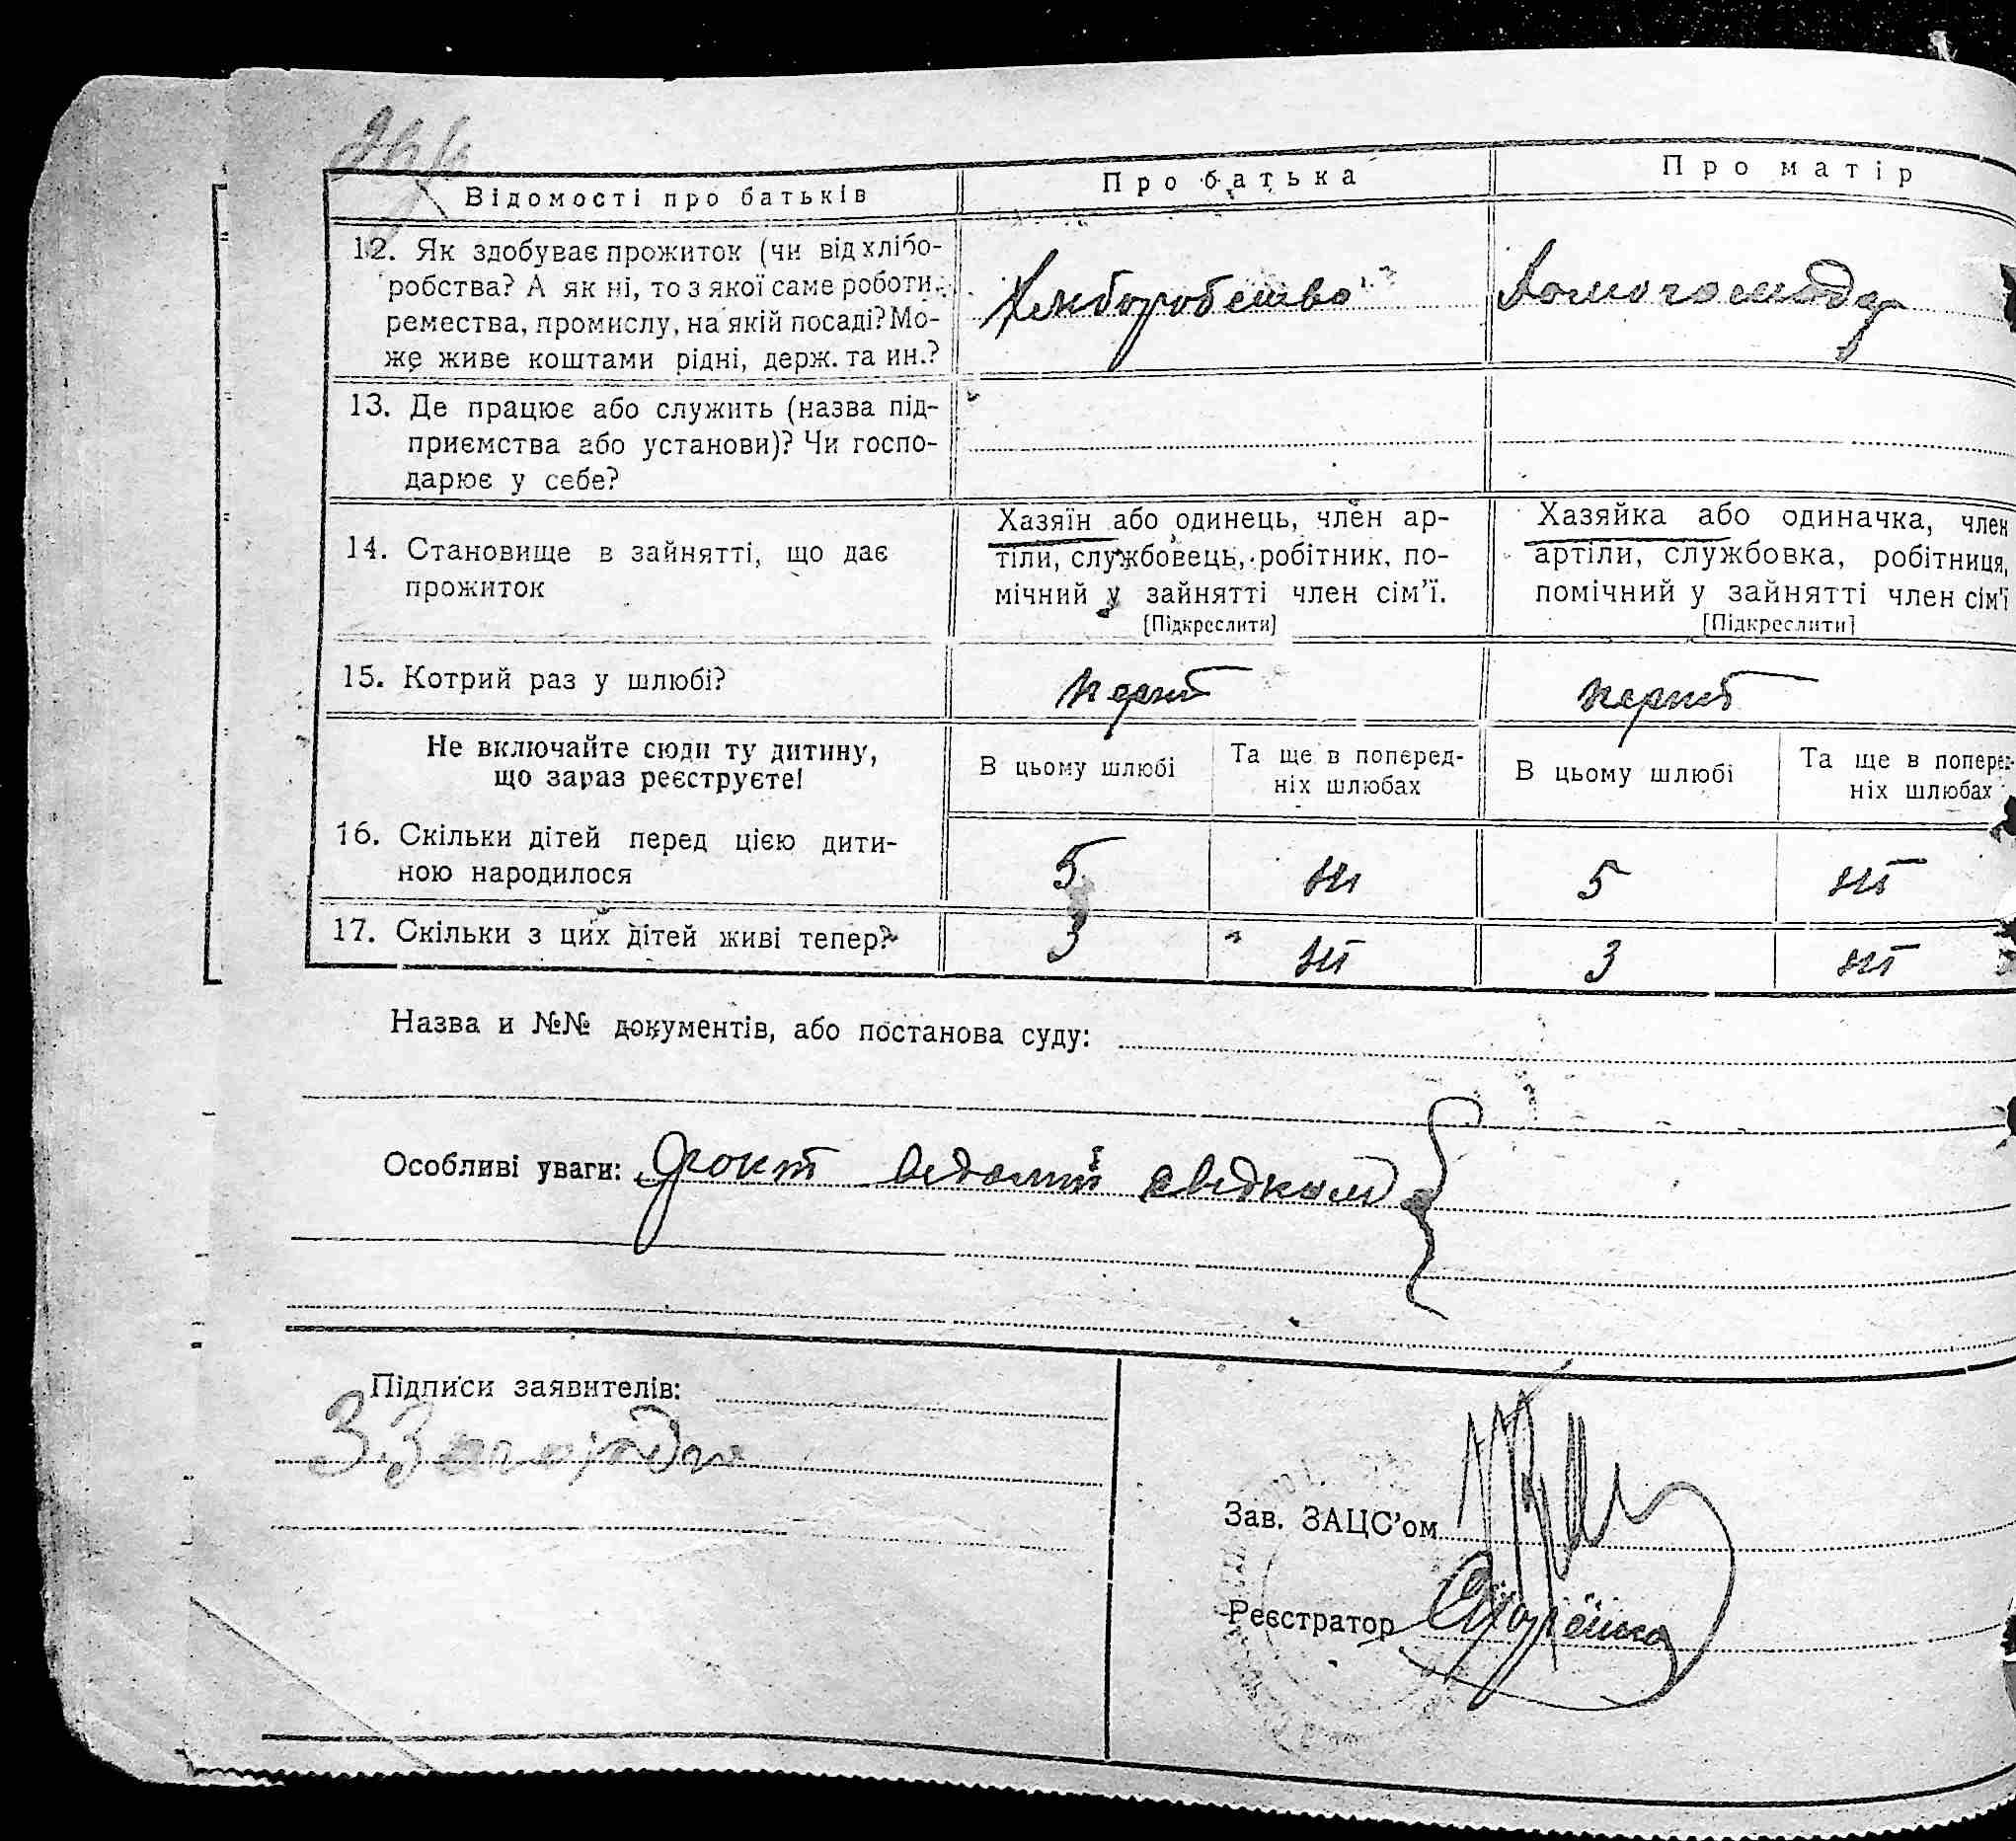 Відомості про батьків
Про батька
Про матір
12. Як здобуває прожиток (чи від хлібо-
робства? А як ні, то з якої саме роботи,
ремества, промислу, на якій посаді? Мо-
же живе коштами рідні, держ. та ин.?
Хлиборобство
Домогосподар
13. Де працює або служить (назва під-
приємства або установи)? Чи госпо-
дарює у себе?
14. Становище в зайнятті, що дає
прожиток
Хазяїн або одинець, член ар-
тіли, службовець, робітник, по-
мічний у зайнятті член сім'ї.
[Підкреслити]
Хазяйка або одиначка, член
артіли, службовка, робітниця,
помічний у зайнятті член сім'ї
[Підкреслити]
15. Котрий раз у шлюбі?
Не включайте сюди ту дитину,
що зараз реєструєте!
В цьому шлюбі
Та ще в поперед-
ніх шлюбах
В цьому шлюбі
Та ще в поперед-
ніх шлюбах
16. Скільки дітей перед цією дити-
ною народилося
5
5
17. Скільки з цих дітей живі тепер?
3
3
Назва и №№ документів, або постанова суду:
Особливі уваги: факт відомий свідкам
Підписи заявителів:
Зав. ЗАЦС'ом
Реєстратор